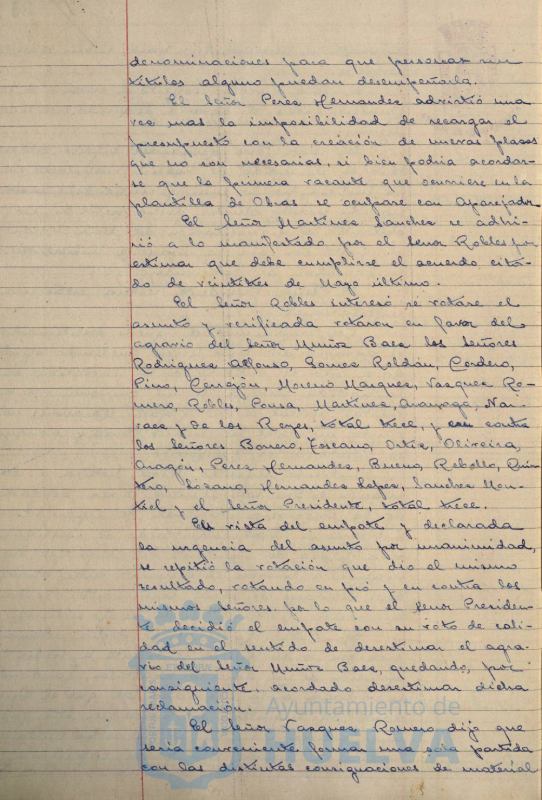 denominaciones para que personas sin
títulos alguno puedan desempeñarla.
El Señor Perez Hernandez advirtió una
vez mas la imposibilidad de recargar el
presupuesto con la creación de nuevas plazas
que no son necesarias, si bien podria acordar-
se que la primera vacante que ocurriese en la
plantilla de Obras se ocupare con Aparejador.
El Señor Martinez Sanchez se adhi-
rió a lo manifestado por el Señor Robles por
estimar que debe cumplirse el acuerdo cita-
do de veintitres de Mayo último.
El Señor Robles interesó se votase el
asunto y verificada votaron en favor del
agravio del Señor Muñoz Baez los Señores
Rodriguez Alfonso, Gomez Roldán, Cordero,
Pino, Cerrejón, Moreno Marquez, Vazquez Ro-
mero, Robles, Ponsa, Martinez, Nar-
vaez y de los Reyes, total trece, y en contra
los Señores Borrero, Toscano, Ortiz, Oliveira,
Aragón, Perez Hernandez, Bueno, Rebollo, Quin-
tero, Lozano, Hernandez Lopez, Sanchez Mon-
tiel y el Señor Presidente, total trece.
En vista del empate y declarada
la urgencia del asunto por unanimidad,
se repitió la votación que dio el mismo
resultado, votando en pró y en contra los
mismos Señores, por lo que el Señor Presiden-
te decidió el empate con su voto de cali-
dad en el sentido de desestimar el agra-
vio del Señor Muñoz Baez, quedando, por
consiguiente, acordado desestimar dicha
reclamación.
El Señor Vazquez Romero dijo que
seria conveniente formar una sola partida
con las distintas consignaciones de material
Ayuntamiento de
HUELVA